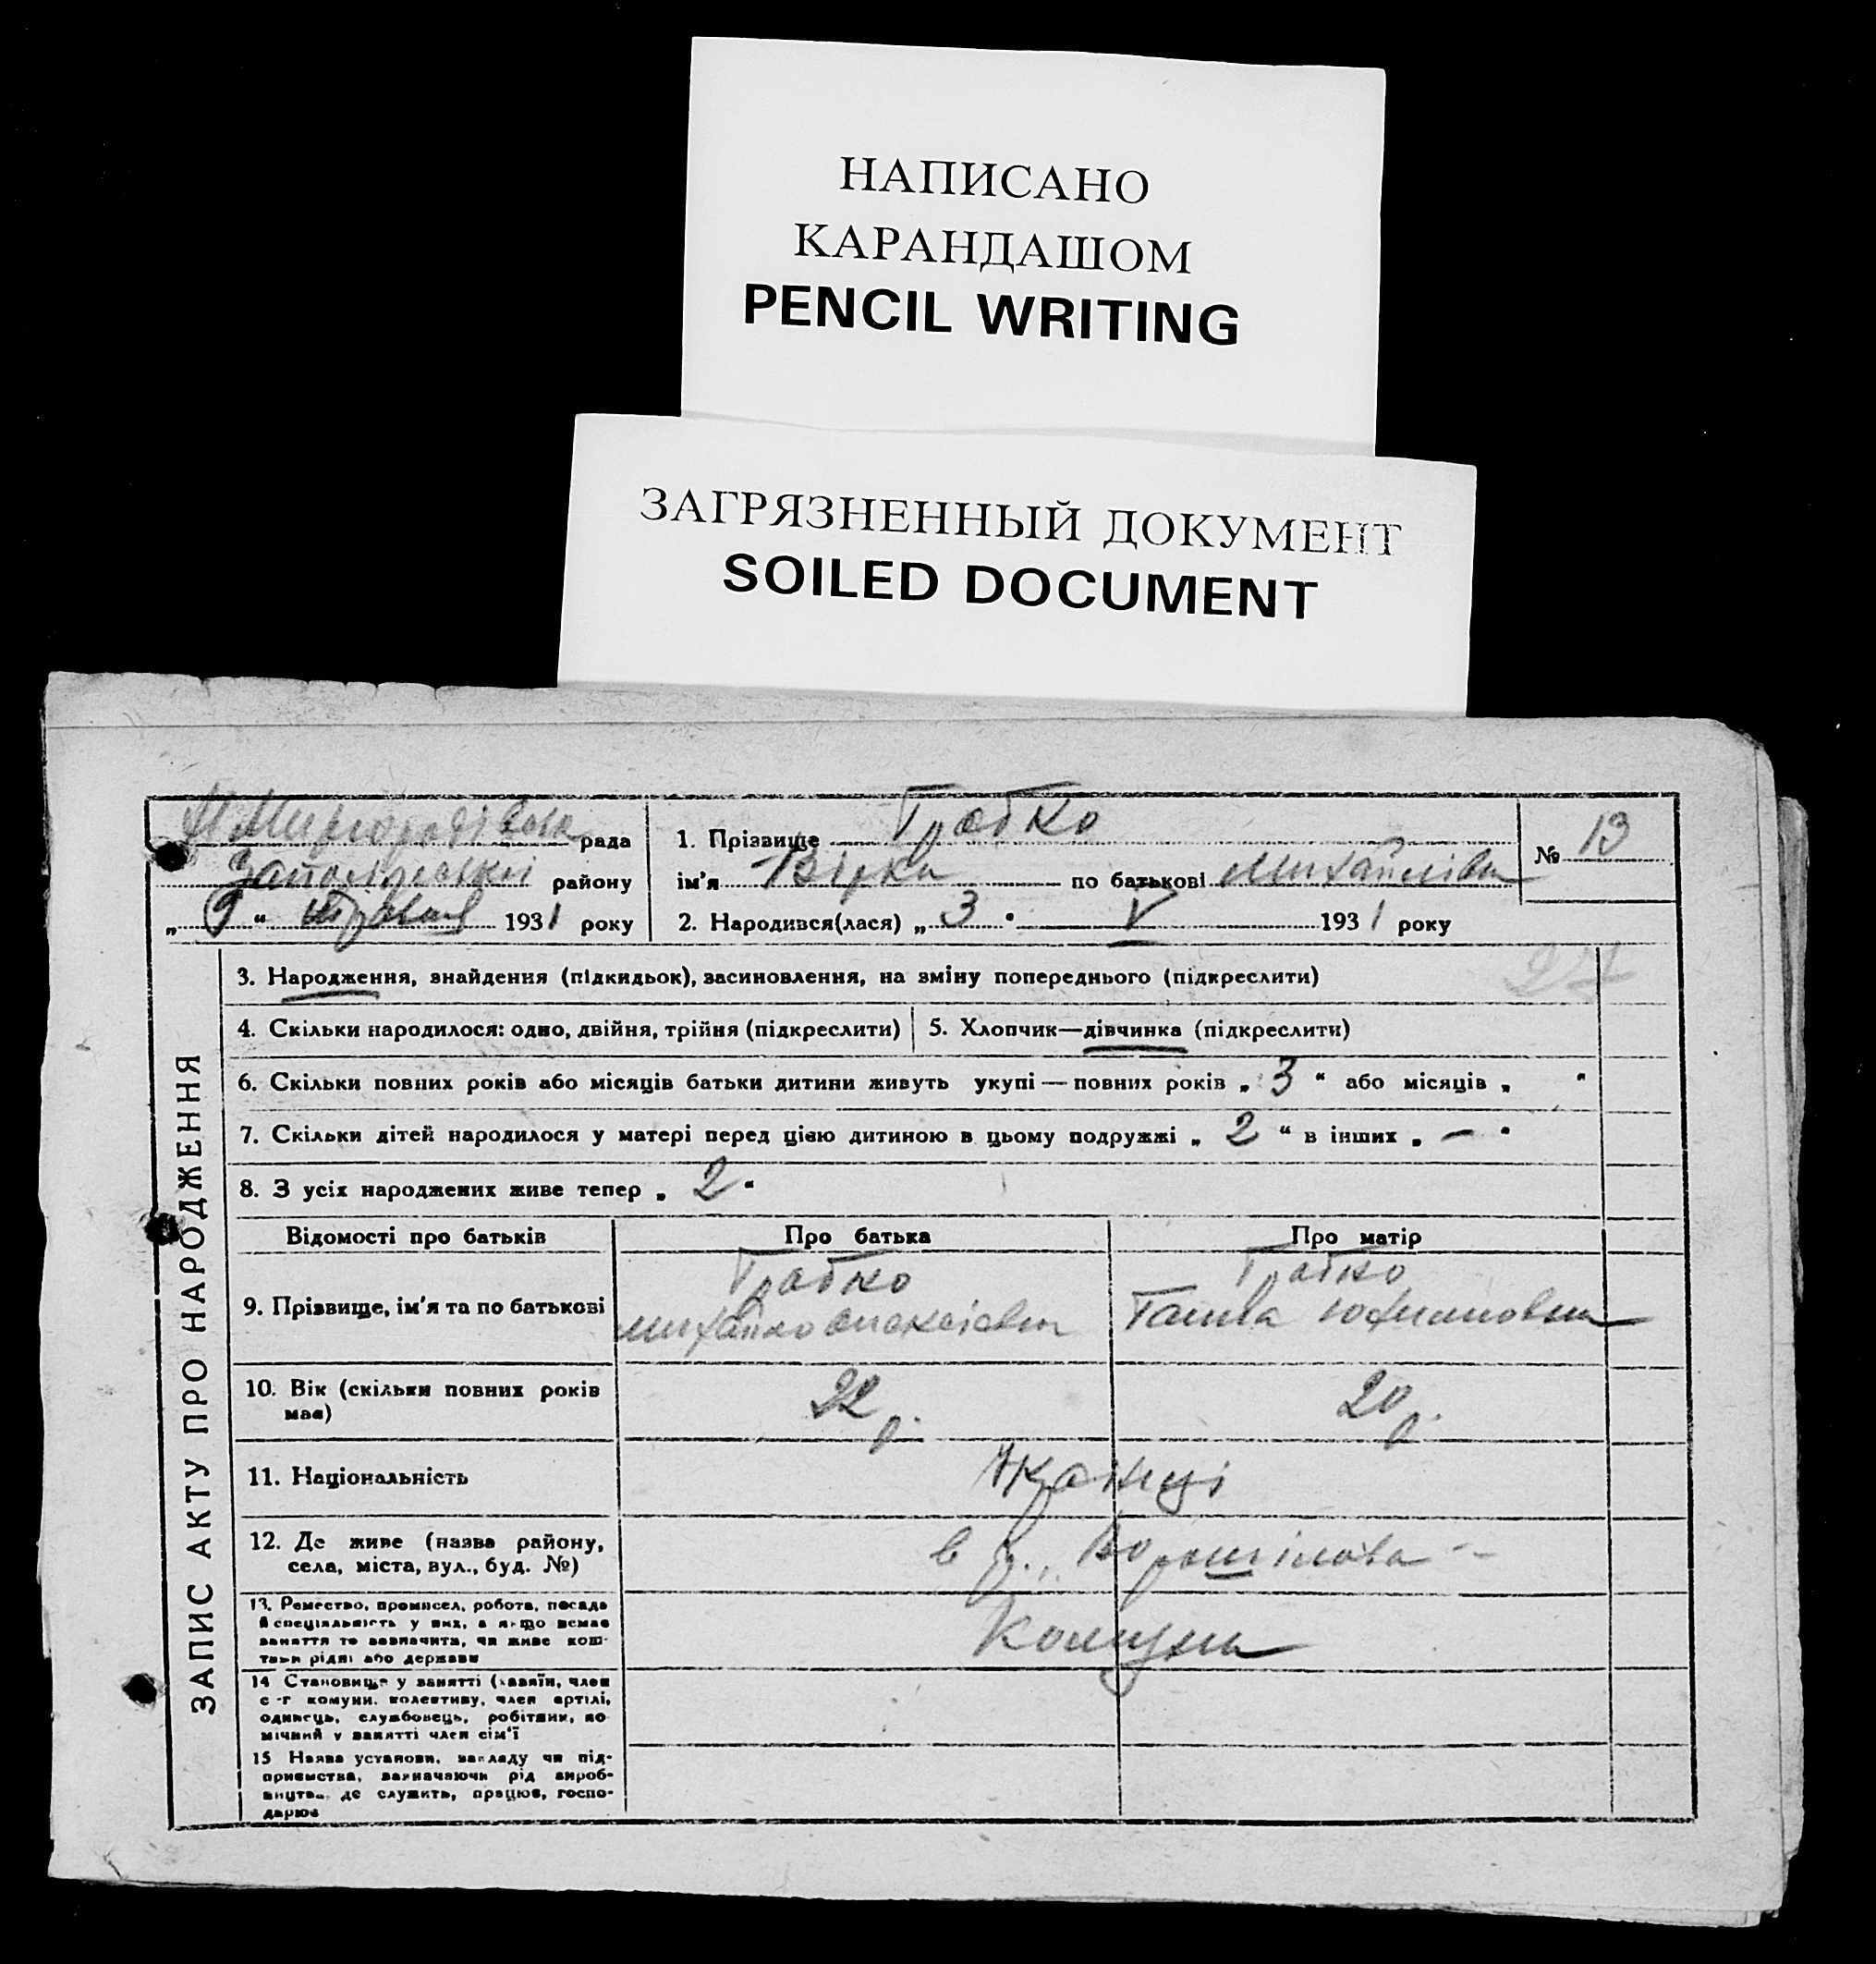 НАПИСАНО
КАРАНДАШОМ
PENCIL WRITING
ЗАГРЯЗНЕННЫЙ ДОКУМЕНТ
SOILED DOCUMENT
рада
району
„ 9 “ травня 1931 року
1. Прізвище Грабко
ім'я Вірка по батькові Михайлівна
2. Народився(лася) „ 3 “ V 1931 року
№ 13
ЗАПИС АКТУ ПРО НАРОДЖЕННЯ
3. Народження, знайдення (підкидьок), засиновлення, на зміну попереднього (підкреслити)
27
4. Скільки народилося: одно, двійня, трійня (підкреслити)
5. Хлопчик—дівчинка (підкреслити)
6. Скільки повних років або місяців батьки дитини живуть укупі — повних років „ 3 “ або місяців „ “
7. Скільки дітей народилося у матері перед цією дитиною в цьому подружжі „ 2 “ в інших „ — “
8. З усіх народжених живе тепер „ 2 “
Відомості про батьків Про батька Про матір
9. Прізвище, ім'я та по батькові
Грабко
Михайло Олексієвич
Грабко
Ганна
10. Вік (скільки повних років
має)
22 р.
20 р.
11. Національність
Українці
12. Де живе (назва району,
села, міста, вул., буд. №)
в Ворошілова
13. Ремество, промисел, робота, посада
й спеціяльність у них, а якщо немає
заняття то зазначити, чи живе кош-
тами рідні або держави
14 Становище у занятті (хазяїн, член
с-г комуни, колективу, член артілі,
одинець, службовець, робітник, по-
мічний у занятті член сім'ї
15 Назва установи, закладу чи під-
приємства, зазначаючи рід вироб-
ництва, де служить, працює, госпо-
дарює